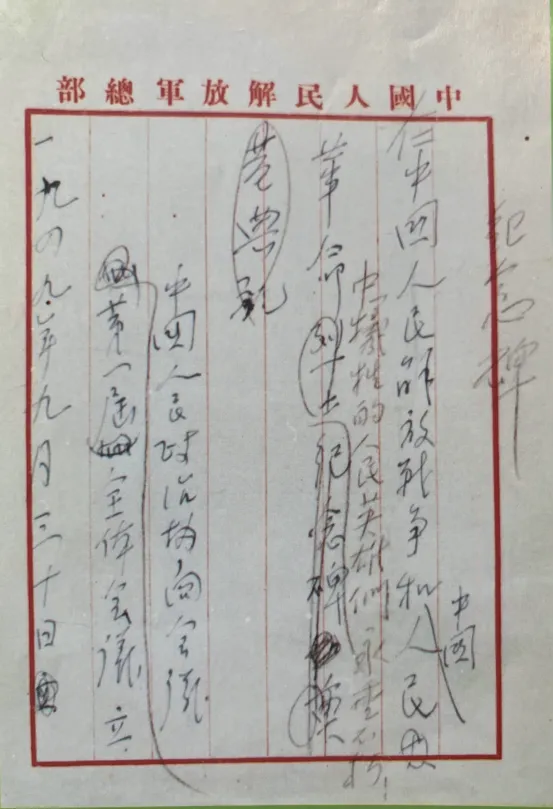 中國人民解放軍總部
紀念碑
中國
中國人民解放战争和人民
中犧牲的人民英雄們永垂不朽！
革命烈士紀念碑
典礼
中國人民政治協商会議
第一届全体会議立
一九四九年九月三十日